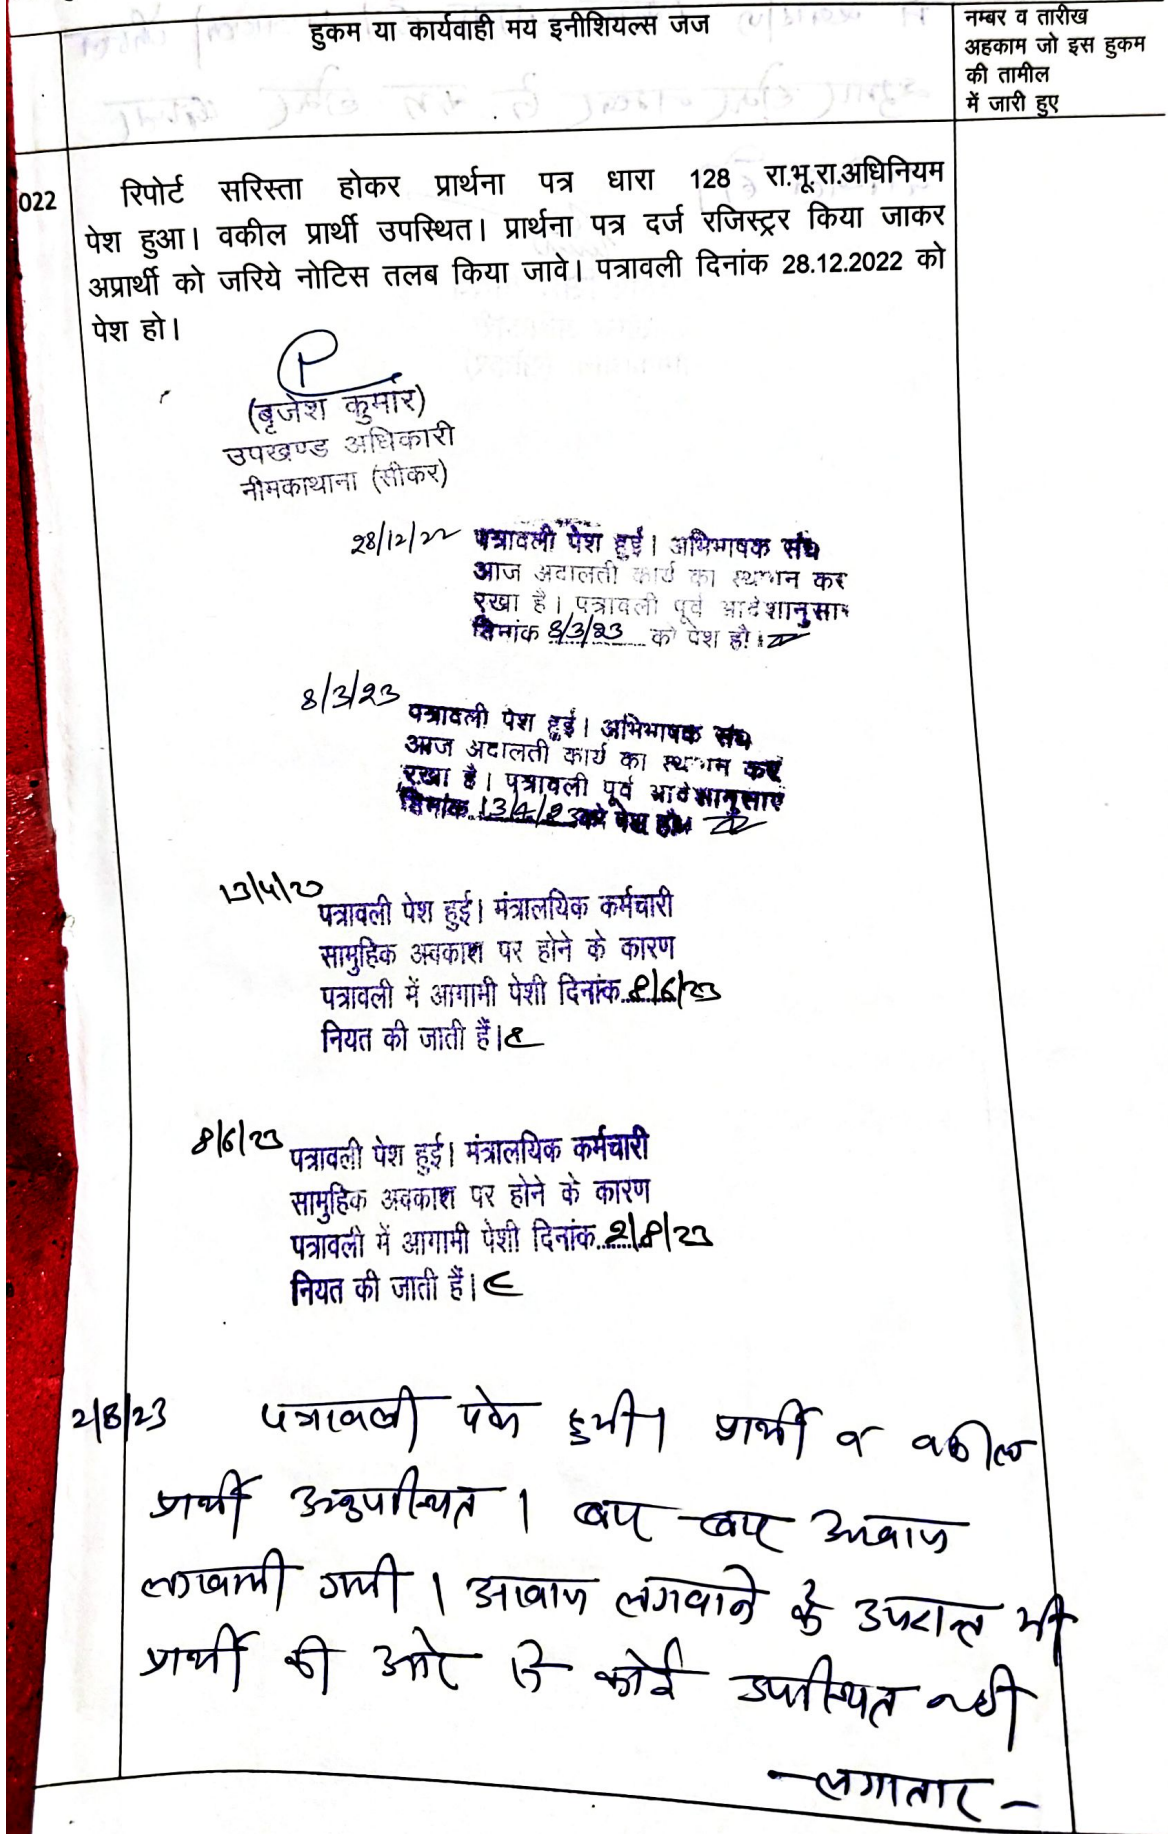 हुकम या कार्यवाही मय इनीशियल्स जज
नम्बर व तारीख
अहकाम जो इस हुकम
की तामील
में जारी हुए
022
रिपोर्ट सरिस्ता होकर प्रार्थना पत्र धारा 128 रा.भू.रा.अधिनियम
पेश हुआ। वकील प्रार्थी उपस्थित। प्रार्थना पत्र दर्ज रजिस्ट्रर किया जाकर
अप्रार्थी को जरिये नोटिस तलब किया जावे। पत्रावली दिनांक 28.12.2022 को
पेश हो।
(बृजेश कुमार)
उपखण्ड अधिकारी
नीमकाथाना (सीकर)
28/12/22 पत्रावली पेश हुई। अभिभाषक संघ
आज अदालती कार्य का स्थगन कर
रखा है। पत्रावली पूर्व आदेशानुसार
दिनांक 8/3/23 को पेश हो।
8/3/23 पत्रावली पेश हुई। अभिभाषक संघ
आज अदालती कार्य का स्थगन कर
रखा है। पत्रावली पूर्व आदेशानुसार
दिनांक 13/4/23 को पेश हो।
13/4/23 पत्रावली पेश हुई। मंत्रालयिक कर्मचारी
सामुहिक अवकाश पर होने के कारण
पत्रावली में आगामी पेशी दिनांक..8/6/23
नियत की जाती हैं।
8/6/23 पत्रावली पेश हुई। मंत्रालयिक कर्मचारी
सामुहिक अवकाश पर होने के कारण
पत्रावली में आगामी पेशी दिनांक..2/8/23
नियत की जाती हैं।
2/8/23 पत्रावली पेश हुयी। प्रार्थी व वकील
प्रार्थी अनुपस्थित। बार बार आवाज
लगवायी गयी। आवाज लगवाने के उपरान्त भी
प्रार्थी की ओर से कोई उपस्थित नही
-लगातार-